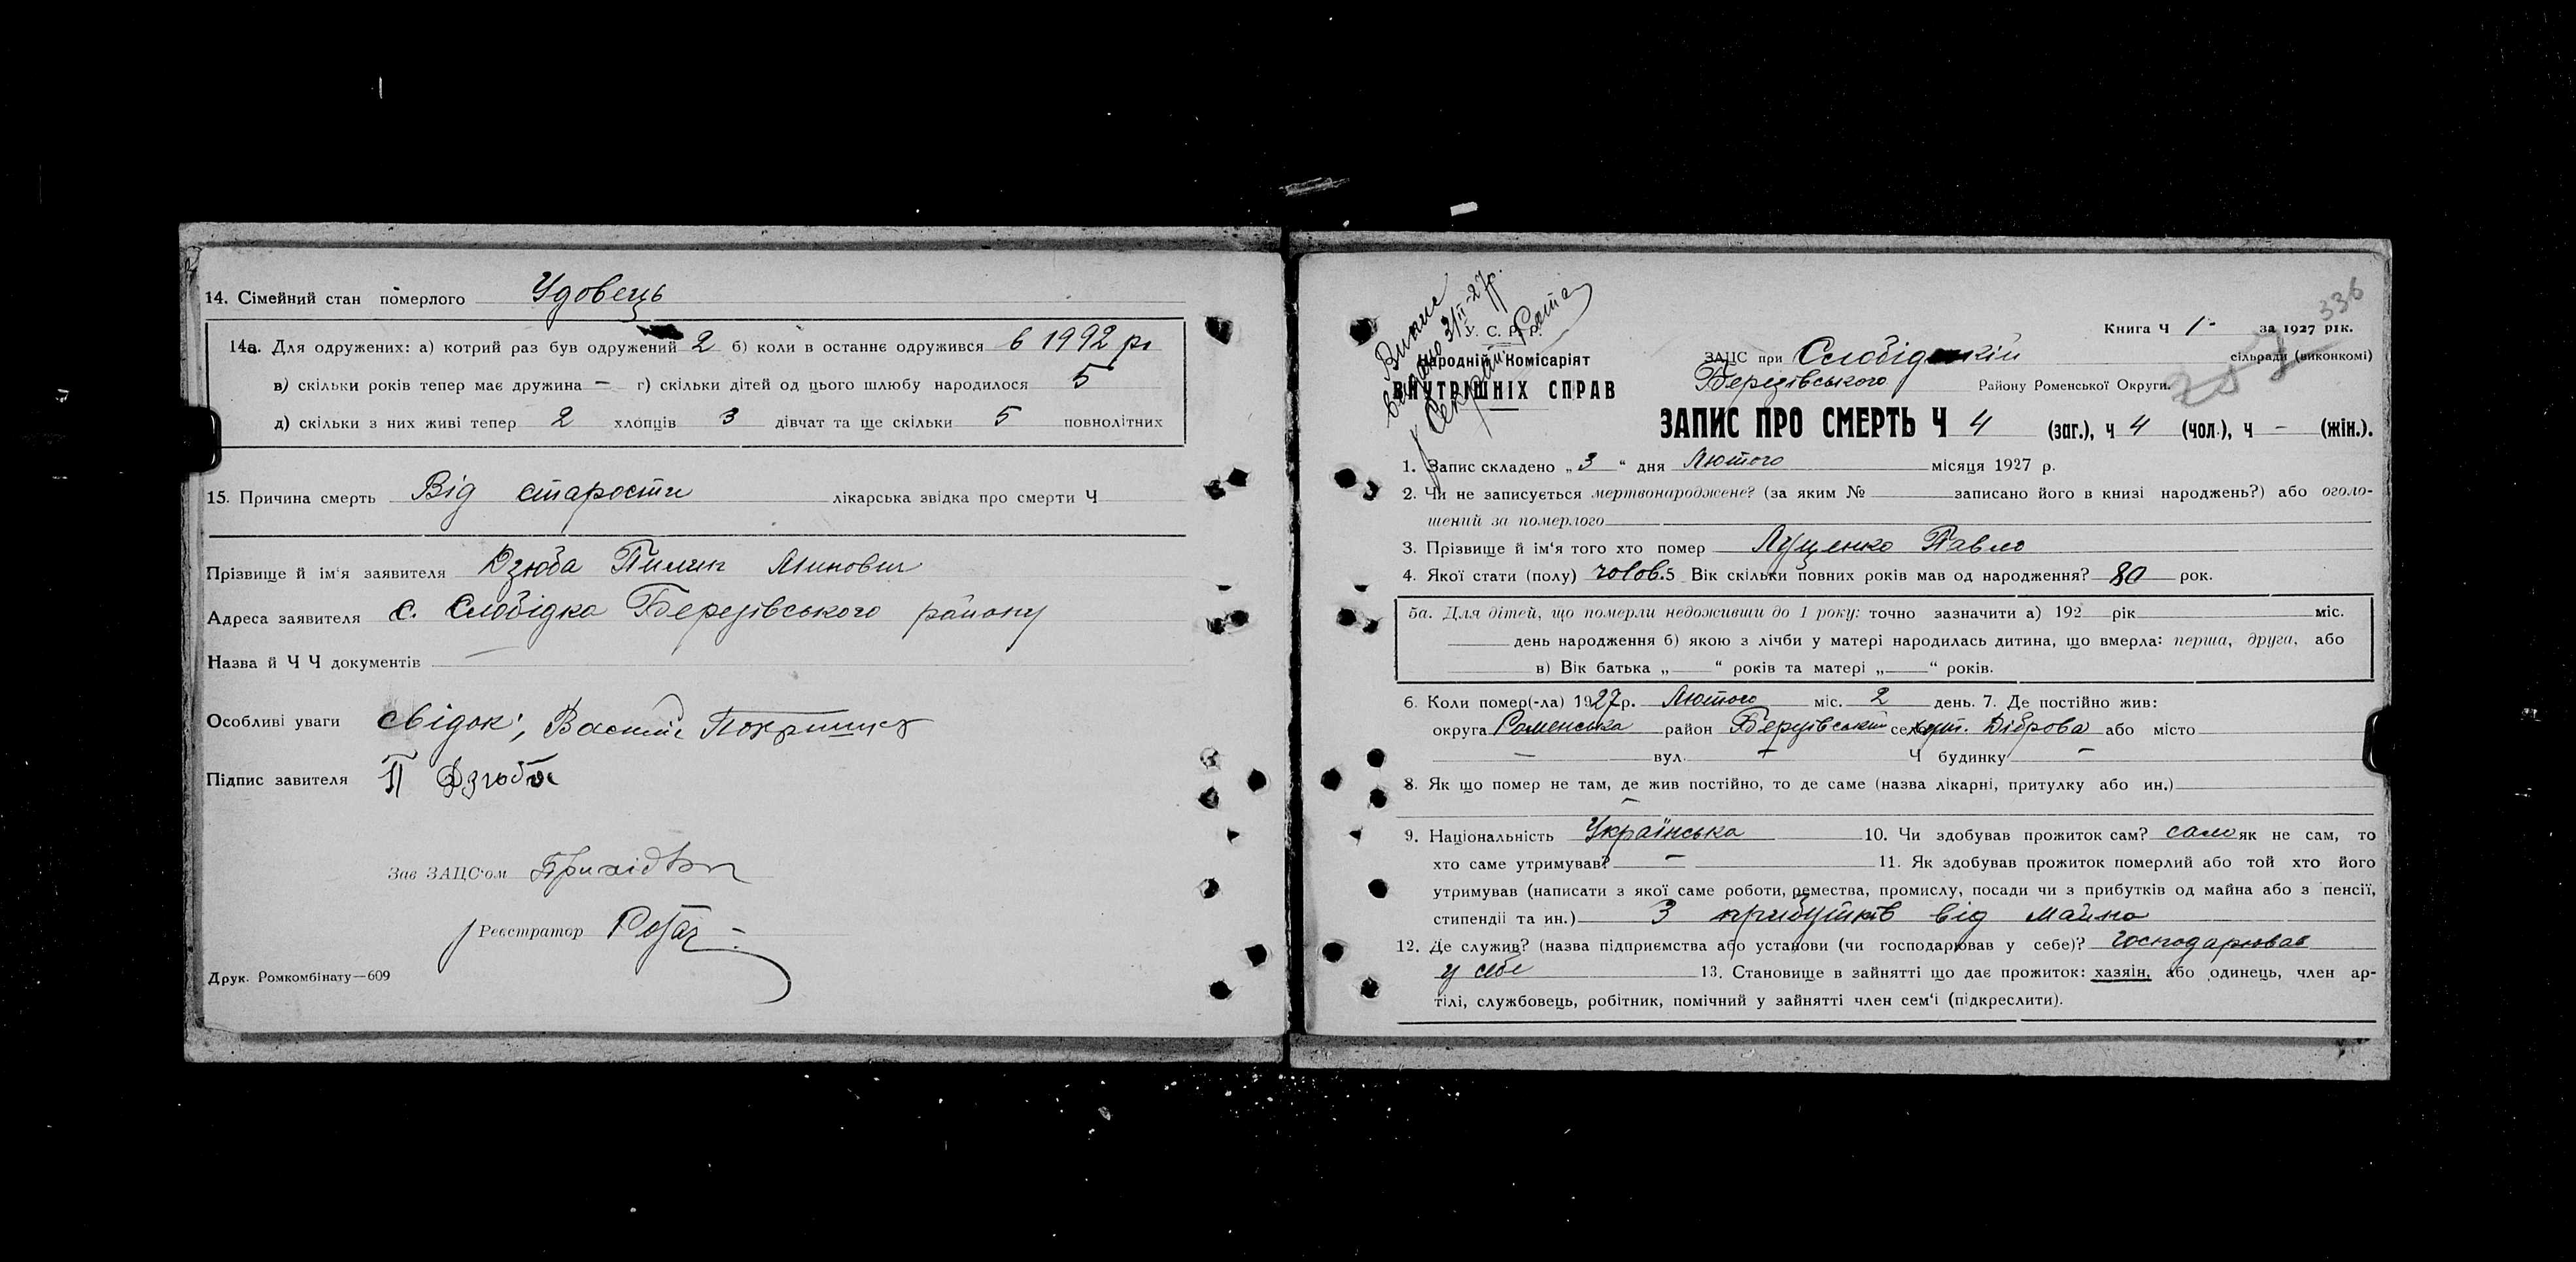 14. Сімейний стан померлого Удовець
14а. Для одружених: а) котрий раз був одружений 2 б) коли в останнє одружився в 1992 р.
в) скільки років тепер має дружина — г) скільки дітей од цього шлюбу народилося 5
д) скільки з них живі тепер 2 хлопців 3 дівчат та ще скільки 5 повнолітних
15. Причина смерть Від старости лікарська звідка про смерти Ч
Прізвище й ім'я заявителя Дзюба Пилип Минович
Адреса заявителя с. Слобідка Березівського району
Назва й Ч Ч документів —
Особливі уваги свідок: Василь
Підпис завителя П Дзюба
Зав ЗАЦС'ом
Реєстратор Рогач
Друк. Ромкомбінату—609
336
Випис
видано 3/II-27р.
Секретар
У. С. Р. Р.
Народній Комісаріят
ВНУТРІШНІХ СПРАВ
Книга Ч 1- за 1927 рік.
ЗАЦС при Слобідській сільради (виконкомі)
Березівського Району Роменської Округи.
ЗАПИС ПРО СМЕРТЬ Ч 4 (заг.), ч 4 (чол.), ч — (жін.).
1. Запис складено „3“ дня Лютого місяця 1927 р.
2. Чи не записується мертвонароджене? (за яким № записано його в книзі народжень?) або оголо-
шений за померлого
3. Прізвище й ім'я того хто помер Луценко Павло
4. Якої стати (полу) чолов. 5 Вік скільки повних років мав од народження? 80 рок.
5а. Для дітей, що померли недоживши до 1 року: точно зазначити а) 192 рік міс.
день народження б) якою з лічби у матері народилась дитина, що вмерла: перша, друга, або
в) Вік батька „ “ років та матері „ “ років.
6. Коли помер(-ла) 1927 р. Лютого міс. 2 день. 7. Де постійно жив:
округа Роменська район Березівський село хут. Діброва або місто
— вул. — Ч будинку —
8. Як що помер не там, де жив постійно, то де саме (назва лікарні, притулку або ин.)
—
9. Національність Українська 10. Чи здобував прожиток сам? сам як не сам, то
хто саме утримував? — 11. Як здобував прожиток померлий або той хто його
утримував (написати з якої саме роботи, ремества, промислу, посади чи з прибутків од майна або з пенсії,
стипендії та ин.) З прибутків від майна
12. Де служив? (назва підприємства або установи (чи господарював у себе)? господарював
у себе 13. Становище в зайнятті що дає прожиток: хазяїн, або одинець, член ар-
тілі, службовець, робітник, помічний у зайнятті член сем'ї (підкреслити).